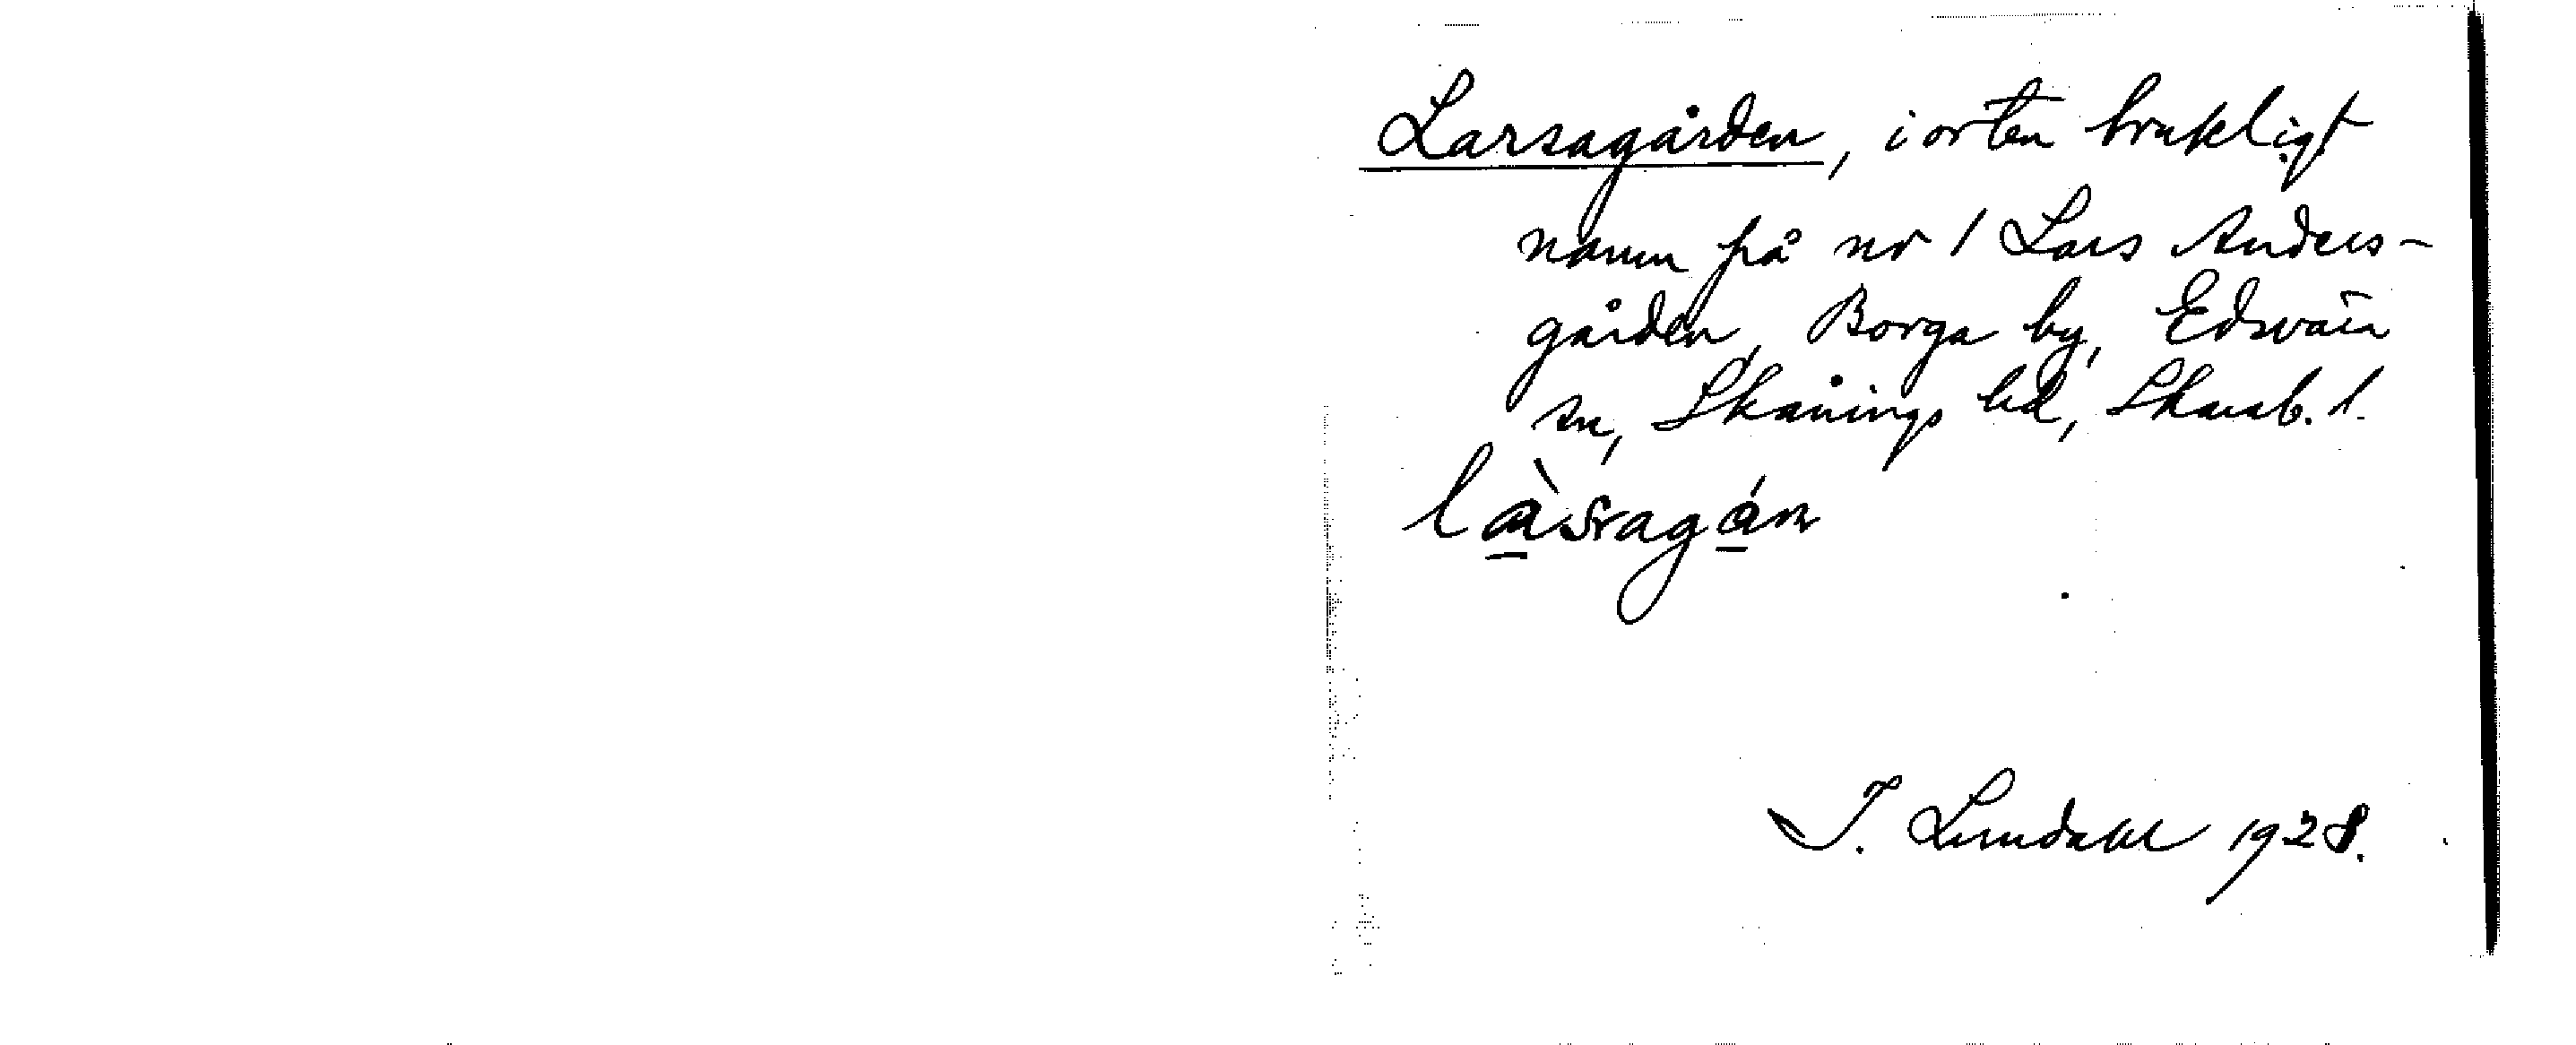 Larsagården, i orten brukligt
namn på nr 1 Lars Anders-
gården, Borga by, Edsvära
sn, Skånings hd, Skarab. l.
làsragán
J. Lundahl 1928.